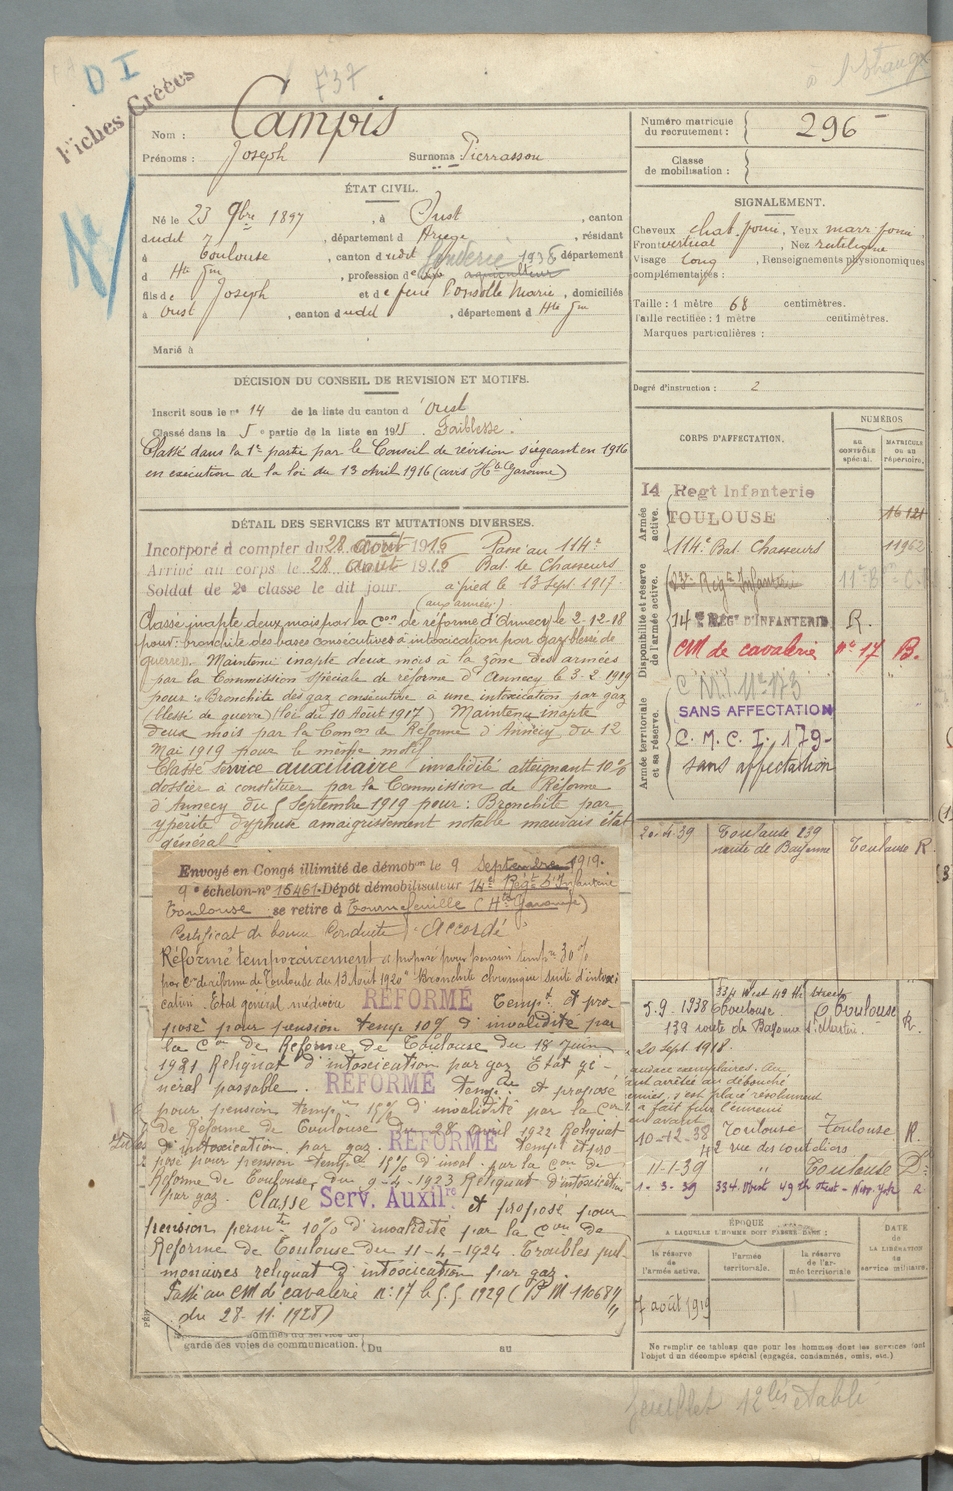 D. I
Fiches Créées
737
Nom : Campis
Prénoms : Joseph Surnoms : Pierrassou
ÉTAT CIVIL.
Né le 23 9bre 1897, à Oust, canton
dudit, département d Ariège, résidant
à Toulouse, canton dudit 1936 département
d Hte Gne, profession de agriculteur
fils de Joseph et de feue Ponsolle Marie, domiciliés
à Oust, canton dudit, département d Hte Gne
Marié à
DÉCISION DU CONSEIL DE REVISION ET MOTIFS.
Inscrit sous le n° 14 de la liste du canton d'Oust
Classé dans la 5e partie de la liste en 1915. Faiblesse.
Classé dans la 1re partie par le Conseil de révision siégeant en 1916
en exécution de la loi du 13 avril 1916 (avis Hte Garonne)
DÉTAIL DES SERVICES ET MUTATIONS DIVERSES.
Incorporé à compter du 28 août 1916 Passé au 114e
Arrivé au corps le 28 août 1916 Bat. de Chasseurs
Soldat de 2e classe le dit jour. à pied le 13 Sept. 1917.
(aux armées)
Classé inapte deux mois par la Con de réforme d'Annecy le 2-12-18
pour: bronchite des bases consécutives à intoxication par gaz (blessé de
guerre). Maintenu inapte deux mois à la zône des armées
par la Commission spéciale de réforme d'Annecy le 3-2 1919
pour : Bronchite des gaz consécutive à une intoxication par gaz
(blessé de guerre) (loi du 10 Août 1917) Maintenu inapte
deux mois par la Comon de Réforme d'Annecy du 12
Mai 1919 pour le même motif
Classé service auxiliaire invalidité atteignant 10%
dossier à constituer par la Commission de Réforme
d'Annecy du 5 Septembre 1919 pour : Bronchite par
ypérite amaigrissement notable mauvais état
général
Envoyé en Congé illimité de démobon le 9 Septembre 1919.
9e échelon-n° 16461. Dépôt démobilisateur 14e Régt d'Infanterie
Toulouse se retire à Tournefeuille (Hte Garonne)
Certificat de bonne Conduite : Accordé
Réformé temporairement et proposé pour pension temp. 30%
par Con de réforme de Toulouse du 13 Août 1920 "Bronchite chronique suite d'intoxi
cation. Etat général médiocre RÉFORMÉ Tempt. et pro
posé pour pension temp. 10% d'invalidité par
la Con de Réforme de Toulouse du 18 Juin
1921 Reliquat d'intoxication par gaz Etat gé-
néral passable. RÉFORMÉ temp. et proposé
pour pension temp. 15% d'invalidité par la Con
de Réforme de Toulouse du 28 avril 1922 Reliquat
d'intoxication par gaz. RÉFORMÉ tempt et pro
posé pour pension temp. 15% d'inval. par la Con de
Réforme de Toulouse du 9-4-1923 Reliquat d'intoxication
par gaz. Classé Serv. Auxilre et proposé pour
pension permte 10% d'invalidité par la Con de
Réforme de Toulouse du 11-4-1924. Troubles pul
monaires reliquat d'intoxication par gaz.
Passé au CM de cavalerie n° 17 le
du 28-11-1928)
garde des voies de communication. Du au
Numéro matricule
du recrutement : 296
Classe
de mobilisation :
SIGNALEMENT.
Cheveux chat. foncé, Yeux marr. foncé
Front vertical, Nez rectiligne
Visage long, Renseignements physionomiques
complémentaires :
Taille : 1 mètre 68 centimètres.
Taille rectifiée : 1 mètre centimètres.
Marques particulières :
Degré d'instruction : 2
CORPS D'AFFECTATION.
NUMÉROS
AU CONTRÔLE spécial.
MATRICULE OU AU répertoire.
Armée active.
14 Regt Infanterie
TOULOUSE 16121
114e Bat. Chasseurs 11962
Disponibilité et réserve de l'armée active.
14e REGt D'INFANTERIE R.
CM de cavalerie N° 17 B.
Armée territoriale et sa réserve.
SANS AFFECTATION
C. M. C. I. 179-
sans affectation
20.4.39 Toulouse 139 Toulouse R
route de Bayonne
5.9.1938 334 West 49 th. street Toulouse R.
Toulouse
139 route de Bayonne St Martin
20 Sept. 1918.
10-12-38 Toulouse Toulouse R.
42 rue des couteliers
11-1-39 " Toulouse D:
1-3-39 334. West 49 th street - New-York R
ÉPOQUE
A LAQUELLE L'HOMME DOIT PASSER DANS :
la réserve de l'armée active.
l'armée territoriale.
la réserve de l'armée territoriale
DATE de LA LIBÉRATION du service militaire.
7 août 1919
Ne remplir ce tableau que pour les hommes dont les services font
l'objet d'un décompte spécial (engagés, condamnés, omis, etc.)
feuillet 12 bis établi